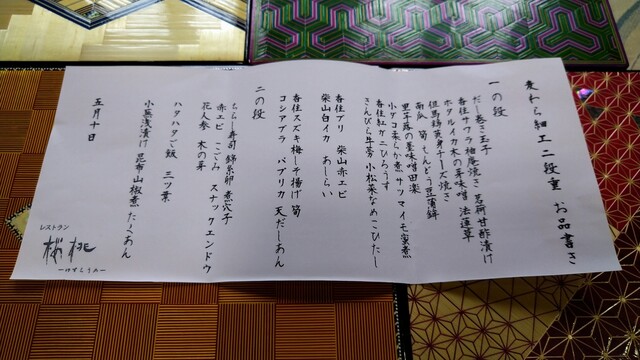 麦わら細工二段重 お品書き
一の段
だし巻き玉子
香住サワラ柚庵焼き 茗荷甘酢漬け
ホタルイカ木の芽味噌 法蓮草
但馬鶏黄身チーズ焼き
南瓜 筍 そんどう豆蜜錦
里芋蕗の薹味噌田楽
小ダコ柔らか煮 サツマイモ蜜煮
香住紅ガニひろうす
きんぴら牛蒡 小松菜なめこひたし
香住ブリ 柴山赤エビ
柴山白イカ あしらい
香住スズキ梅しそ揚げ 筍
コシアブラ パプリカ 天だしあん
二の段
ちらし寿司 錦糸卵 煮穴子
赤エビ こごみ スナックエンドウ
花人参 木の芽
ハタハタご飯 三ツ葉
小蕪浅漬け 昆布山椒煮 たくあん
五月十日
レストラン
桜桃
ーゆすらうめー